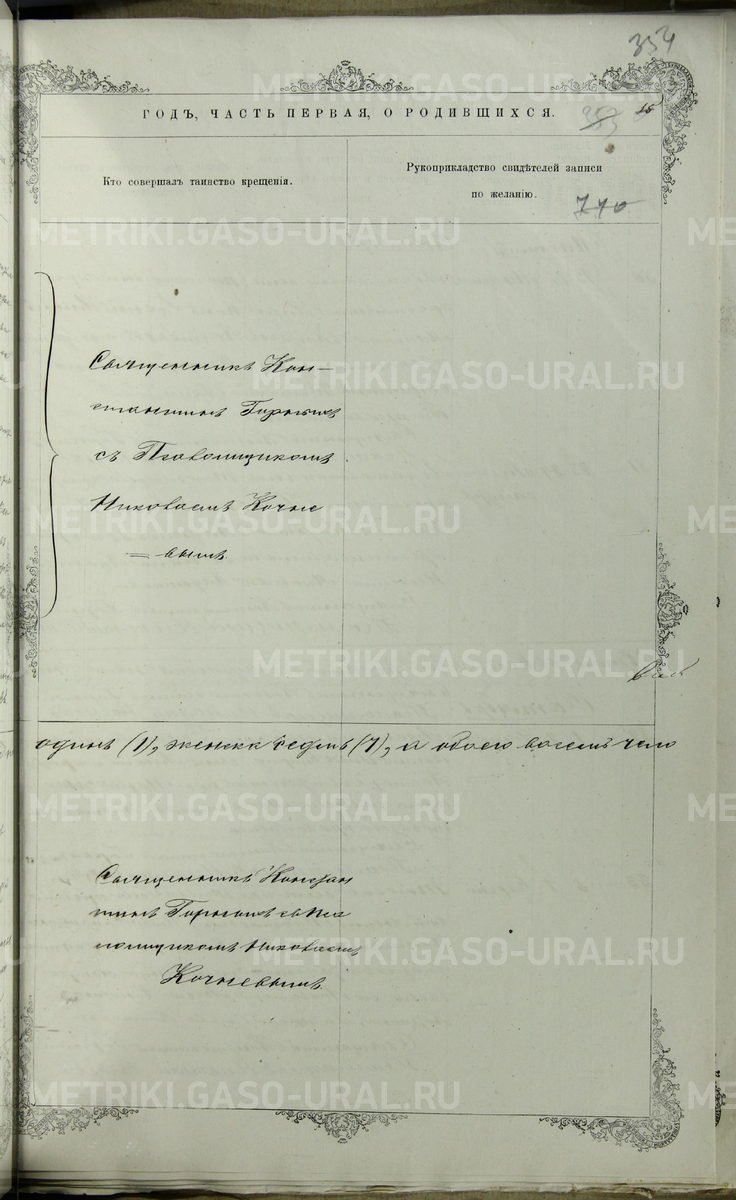 354
ГОДЪ, ЧАСТЬ ПЕРВАЯ, О РОДИВШИХСЯ.
353
Кто совершалъ таинство крещенія.
Рукоприкладство свидѣтелей записи
по желанію.
Священникъ Кон-
стантинъ
съ Псаломщикомъ
Николаемъ Кочне
=вымъ.
одинъ (1), женска седмь (7), а обоего восемь чело
Священникъ Констан
тинъ съ Пса
ломщикомъ Николаемъ
Кочневымъ.
METRIKI.GASO-URAL.RU